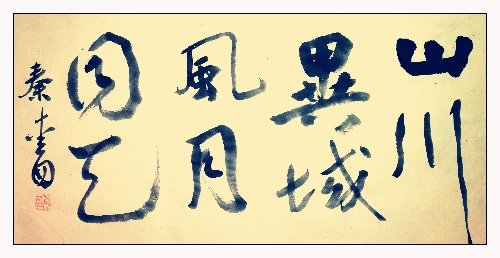 山川
異域
風月
同天
秦